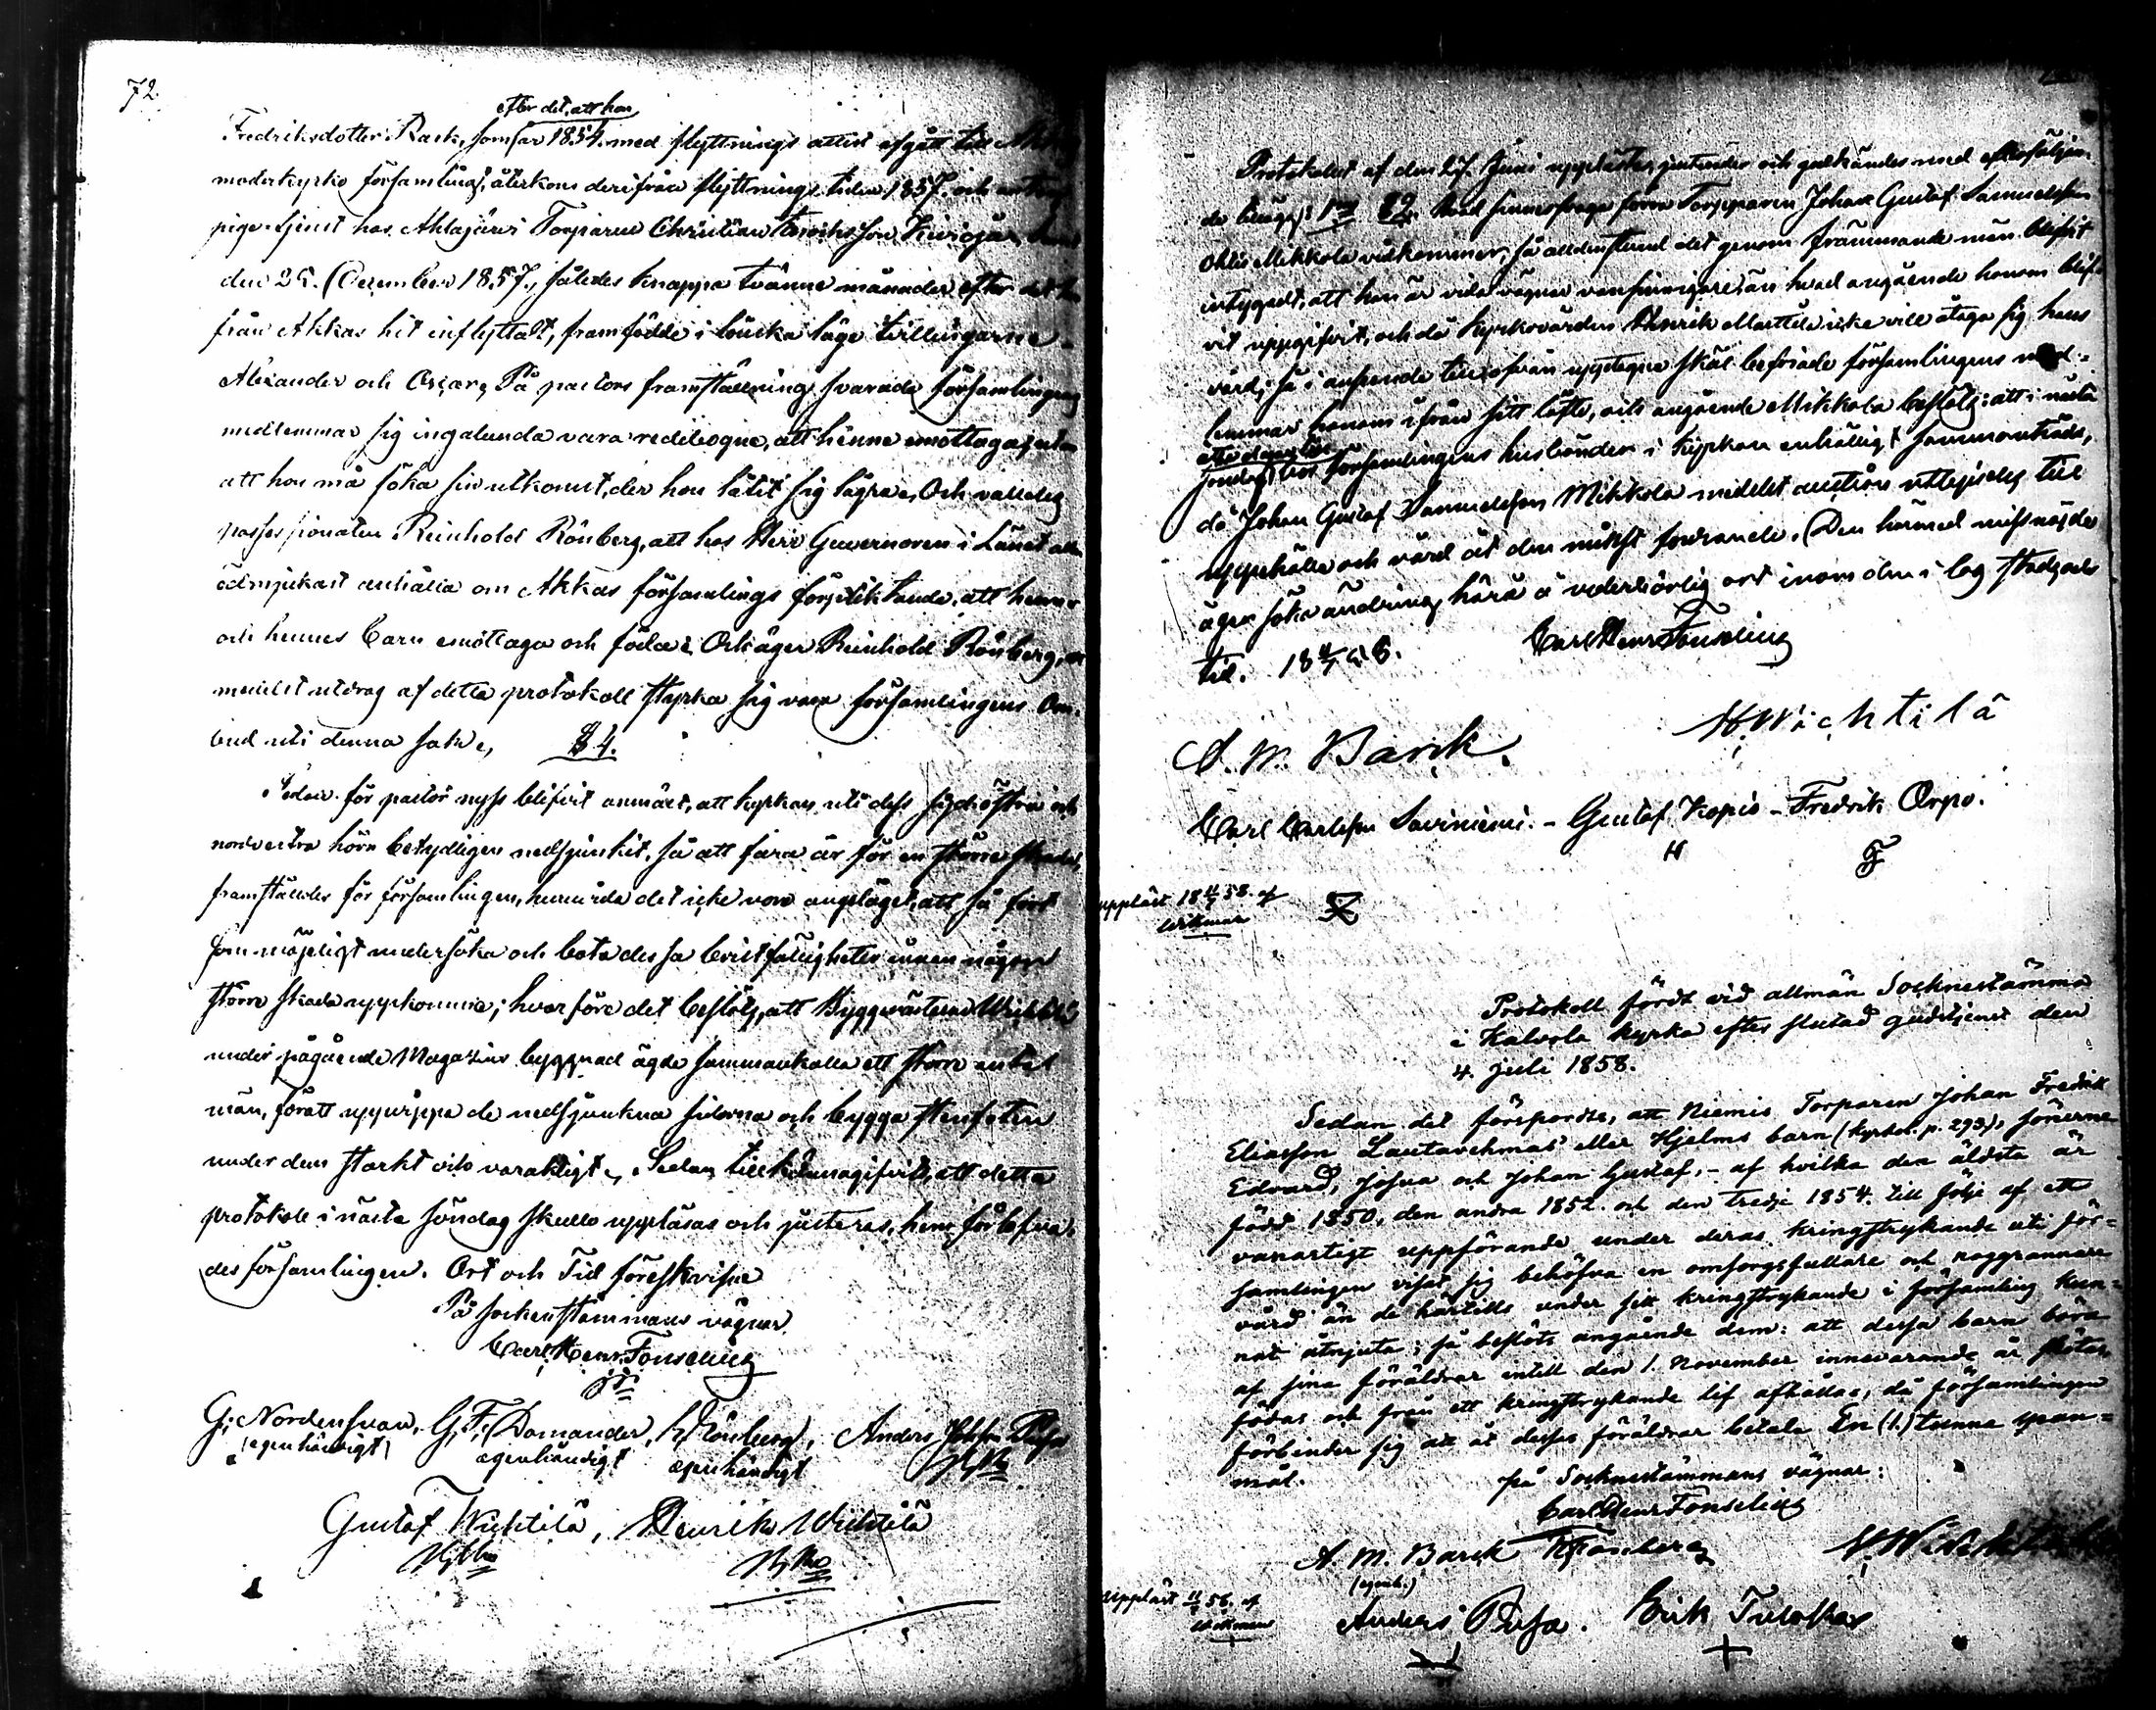 72.
efter det, att hon
Fredriksdotter Rask, som för 1854. med flyttnings attest afgått till
moderkyrko församling, återkom derifrån flyttnings tiden 1857. och
pige tjenst hos Ahlajärvi Torparen Christian Henriksson
den 25. December 1857., således knappa tvänne månader efter det
från Akkas hit inflyttat, framfödde i lönska läge tvillingarne
Alexander och Oscar, På pastors framställning svarade församlingens
medlemmar sig ingalunda vara redebogne, att henne emottaga, utan
att hon må söka sin utkomst, der hon låtit sig lägra. Och
possessionaten Reinhold Rönberg, att hos Herr Guvernören i Länet
ödmjukast anhålla om Akkas församlings förpliktande, att henne
och hennes barn emottaga och föda. Och äger Reinhold Rönberg,
medelst utdrag af detta protokoll styrka sig vara församlingens Om-
bud uti denna sak.
§ 4.
Sedan för pastor nyss blifvit anmält, att kyrkan uti dess och
nordvestra hörn betydligen nedsjunkit, så att fara är för en större skada,
framställdes för församlingen, huruvida det icke vore angeläget, att så fort
som möjeligt undersöka och bota dessa bristfälligheter innan någon
större skada uppkomme; hvarföre det beslöts, att Byggmästaren
under pågående Magazins byggnad ägde sammankalla ett större antal
män, för att upp de nedsjunkna sidorna och bygga stenfoten
under dem starkt och varaktigt. Sedan tillkännagifvits, att detta
protokoll i nästa söndag skulle uppläsas och justeras, hem förlofva-
des församlingen. Ort och Tid föreskrifne
På sockenstämmans vägnar
Carl Henr. Fonselius
G. Nordensvan, G. F. Domander, R. Rönberg, Anders Pusa
(egenhändigt) egenhändigt egenhändigt
Gustaf Wichtilä, Henrik Wichtilä
Protokollet af den 27. Juni upplästes, justerades och godkändes med efterfölljan-
de tillägg: 1mo § 2. Hvad sinnessvage förra Torpparen Johan Gustaf Samuelsson
Ohlis Mikkola vidkommer, så alldenstund det genom främmande män blifvit
intygadt, att han är vida vägnar vansinnigare, än hvad angående honom blif-
vit uppgifvit, och då Kyrkovärden Henrik Marttila icke vill åtaga sig hans
vård; så i anseende till ofvan uppteqne skäl befriade församlingens med-
lemmar honom ifrån sitt löfte, och angående Mikkola beslöts: att i nästa
söndag församlingens husbönder i kyrkan enhälligt sammanträda,
då Johan Gustaf Samuelsson Mikkola medelst auction utlejdes till
uppehälle och vård åt den minst fordrande. Den härmed missnöjde
ägen söka ändring häri å vederbörlig ort inom den i lag stadgade
tid. 18 4/7 58.
Carl Henr Fonselius
A. M. Barck.
H. Wichtilä
Carl Carlsson Saviniemi. - Gustaf Kopis - Fredrik Orpo.
uppläst 18 11/7 58. af
Wikman
Protokoll fördt vid allmän Socknestämma
i Kalvola kyrka efter slutad gudstjenst den
4. juli 1858.
Sedan det försports, att Niemis Torparen Johan Fredrik
Eliasson Lautavehmas eller Hjelms barn (kyrkob. p. 293), sönerne
Edvard, Josua och Johan Gustaf, - af hvilka den äldsta är
född 1850, den andra 1852. och den tredje 1854. till följe af ett
vanartigt uppförande under deras kringstrykande uti för-
samlingen visat sig behöfva en omsorgsfullare och noggrannare
vård än de härtills under sitt kringstrykande i församling kun-
nat åtnjuta; så beslöts angående dem: att dessa barn böra
af sina föräldrar intill den 1. November innevarande år skötas,
födas och från ett kringstrykande lif afhållas; då församlingen
förbinder sig att åt desses föräldrar betala En (1.) tunna span-
mål.
på Socknestämmans vägnar:
Carl Henr Fonselius
A. M. Barck
(egenh.)
R Rönberg
uppläst 11/7 58. af
Wikman
Anders Pusa. Erik